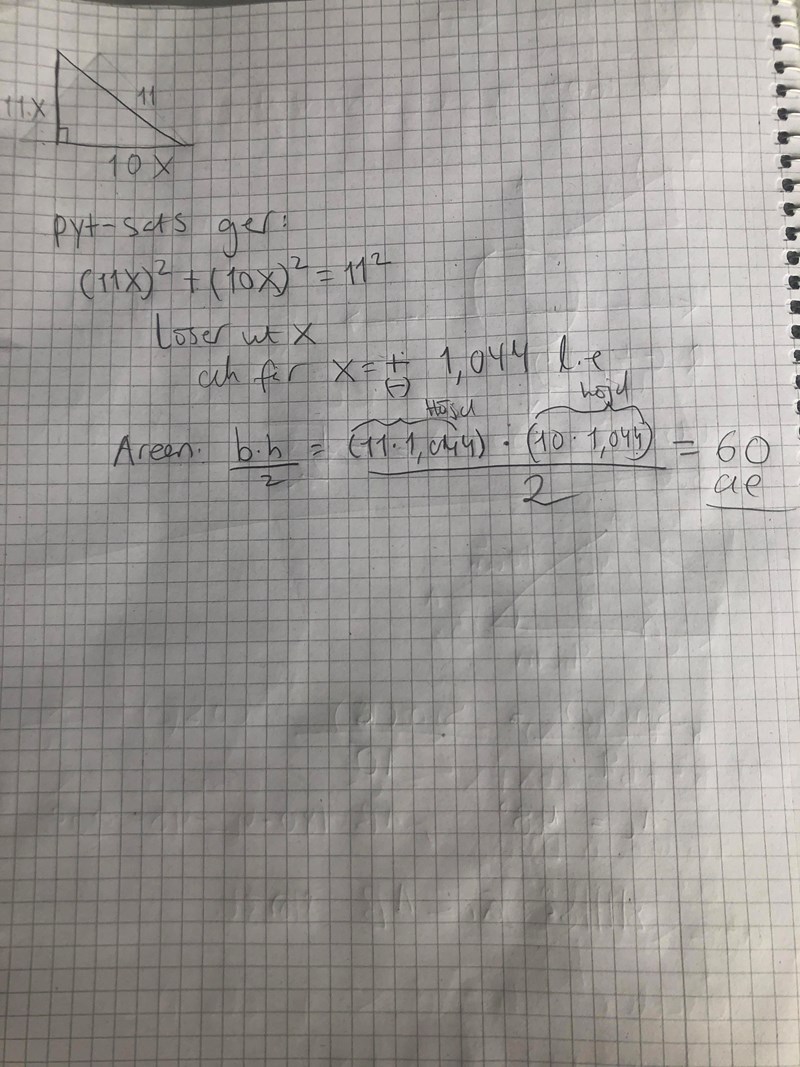 11x
11
10x
pyt-sats ger:
(11x)² + (10x)² = 11²
Löser ut x
och får x = ± 1,044 l.e
(-)
höjd
Arean: b·h/2 = (11·1,044) · (10·1,044) / 2 = 60
ae